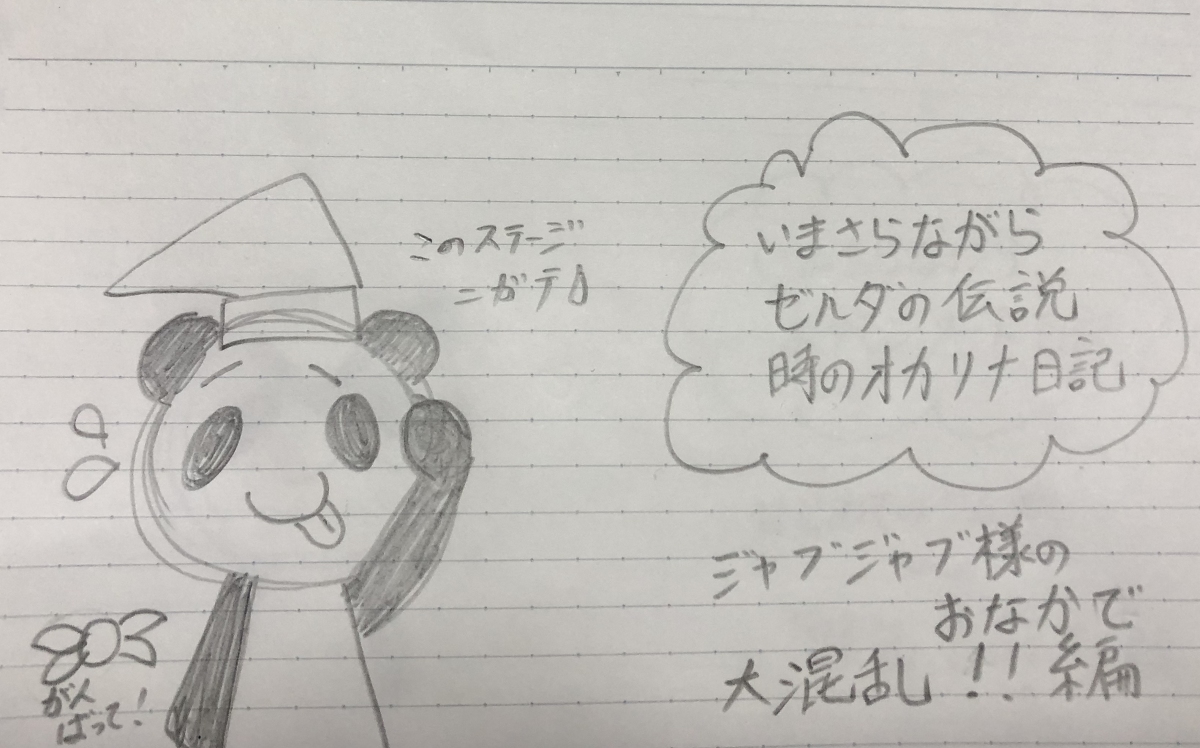 このステージ
ニガテ
いまさらながら
ゼルダの伝説
時のオカリナ日記
ジャブジャブ様の
おなかで
大混乱!!編
がん
ばって!